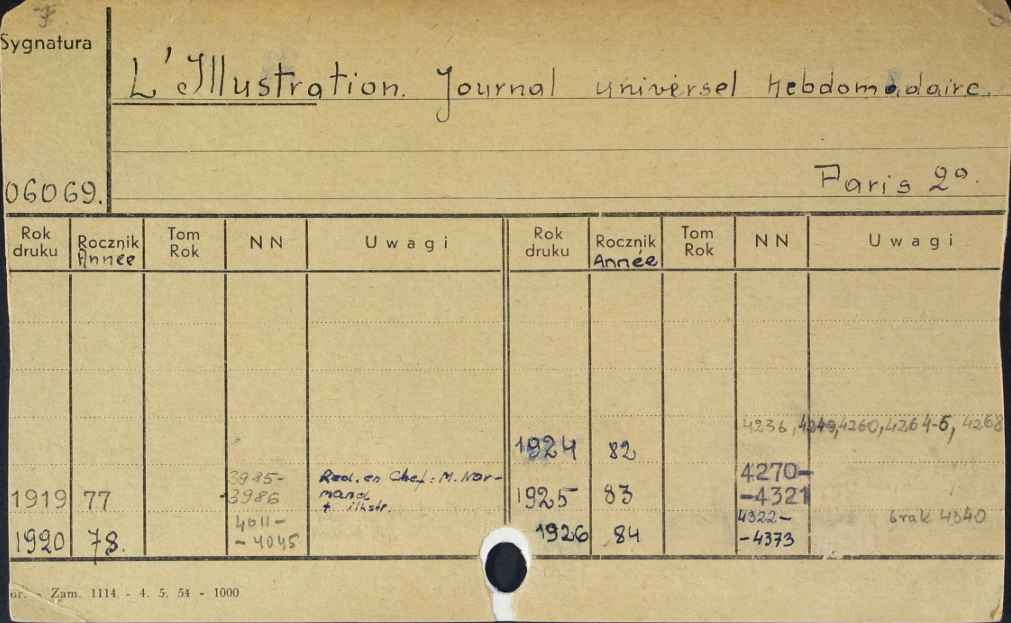 Sygnatura
L'Illustration. Journal universel hebdomadaire.
06069.
Paris 2º.
Rok druku Rocznik Année Tom Rok NN Uwagi Rok druku Rocznik Année Tom Rok NN Uwagi
1924 82 4236, 4249, 4260, 4264-5, 4268
1919 77 3985-
-3986 Red. en Chef: M. Nor-
mand
+ illustr.
1925 83 4270-
-4321
1920 78. 4011-
-4045
1926 84 4322-
-4373 brak 4340
Zam. 1114 - 4. 5. 54 - 1000